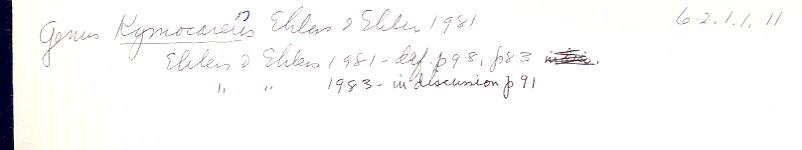 Genus Kymocareus Ehlers & Ehler 1981 6.2.1.1.11
Ehlers & Ehlers 1981 - def. p98, p83
" " 1983 - in discussion p 91